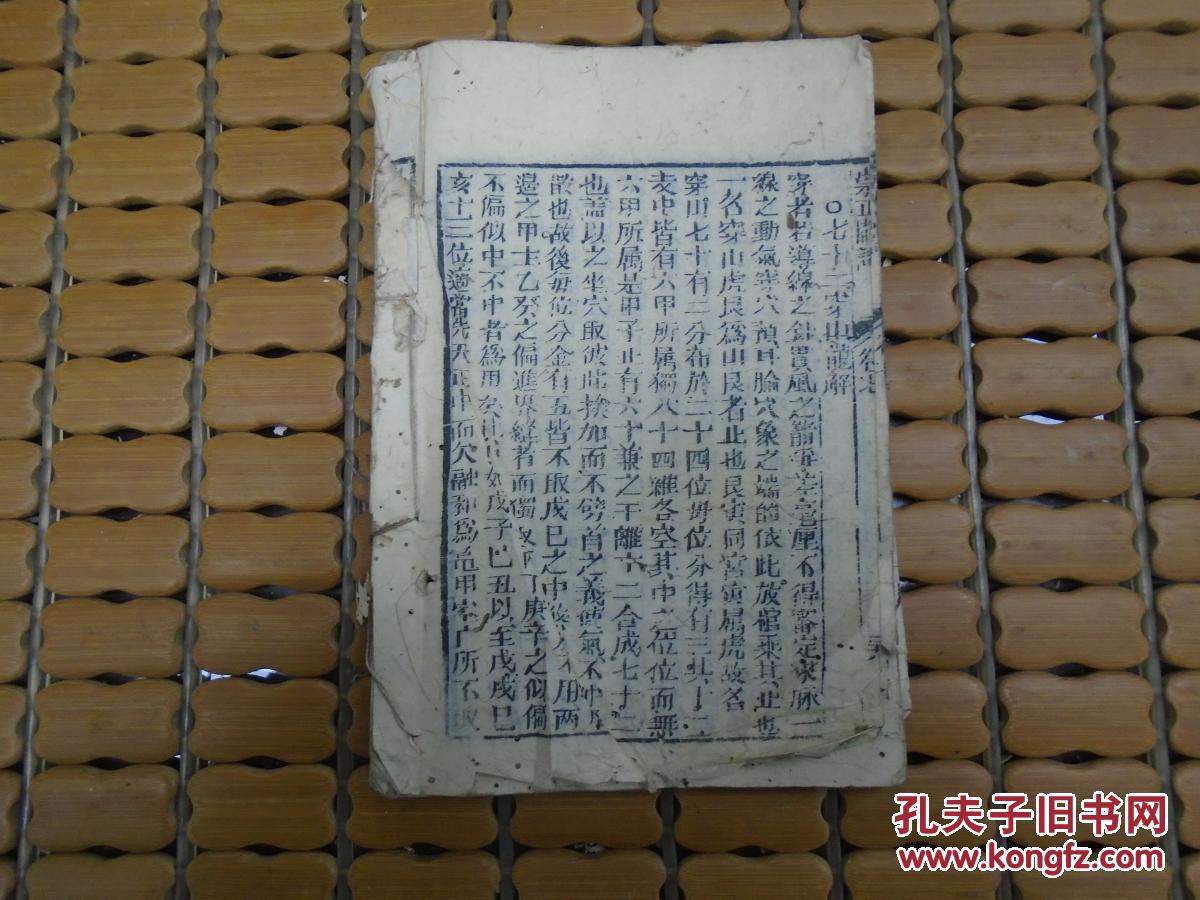 卷七
〇七十二穿山龍解
穿者若導線之針貫風之 毫厘不得審定來脉一
線之動氣 依此放棺乘其止也
一名穿山虎艮為山艮者止也艮寅同宮寅属虎故名
穿山七十有二分布於二十四位每位分得有三其十二
支中皆有六甲所属獨八干四維各空其中之位位而無
六甲所属是甲子止有六十兼之干維十二合成七十二
也蓋以之坐穴取彼此挨加而不劈首之義使氣不冲
散也故後每位分金有五皆不取戊巳之中 用两
邉之甲壬乙癸之偏 者而獨取丙丁庚辛之似偏
不偏似中不中者為用矣 如戊子巳丑以至戊戌巳
亥十二位適當先天正中而欠融 為 甲 所不取
孔夫子旧书网
www.kongfz.com